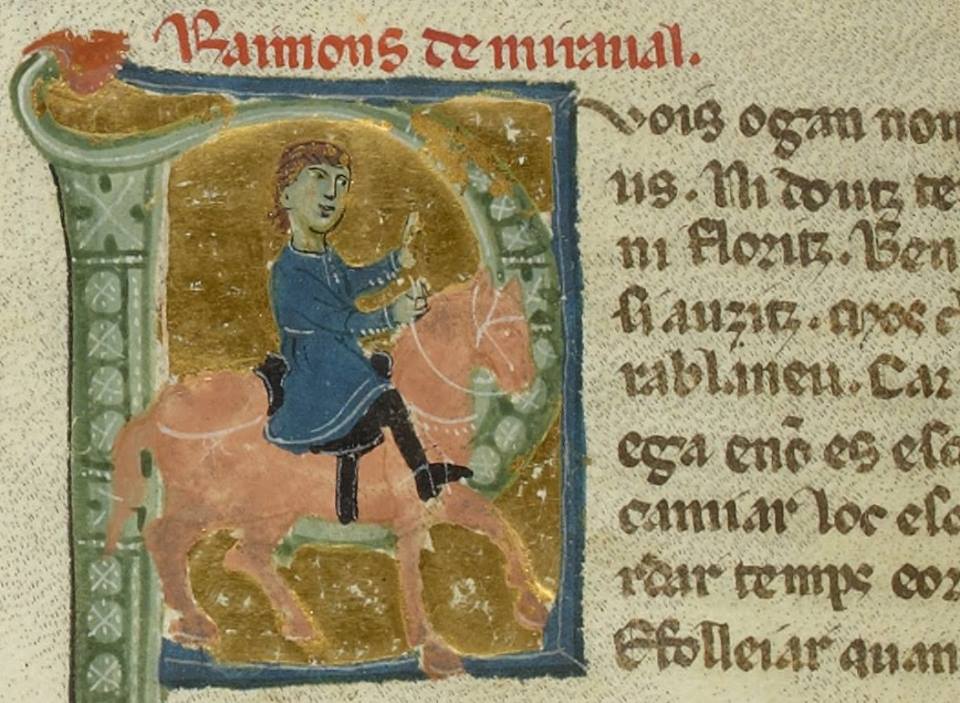 Raimons de miraual.
vois ogan non
us. Ni doutz te
ni floritz. Ben
si auzitz. mos c
rablineu. Car
ega enc̄ es esc
camiar loc esc
rdar temps eor
Esfolleiar quan